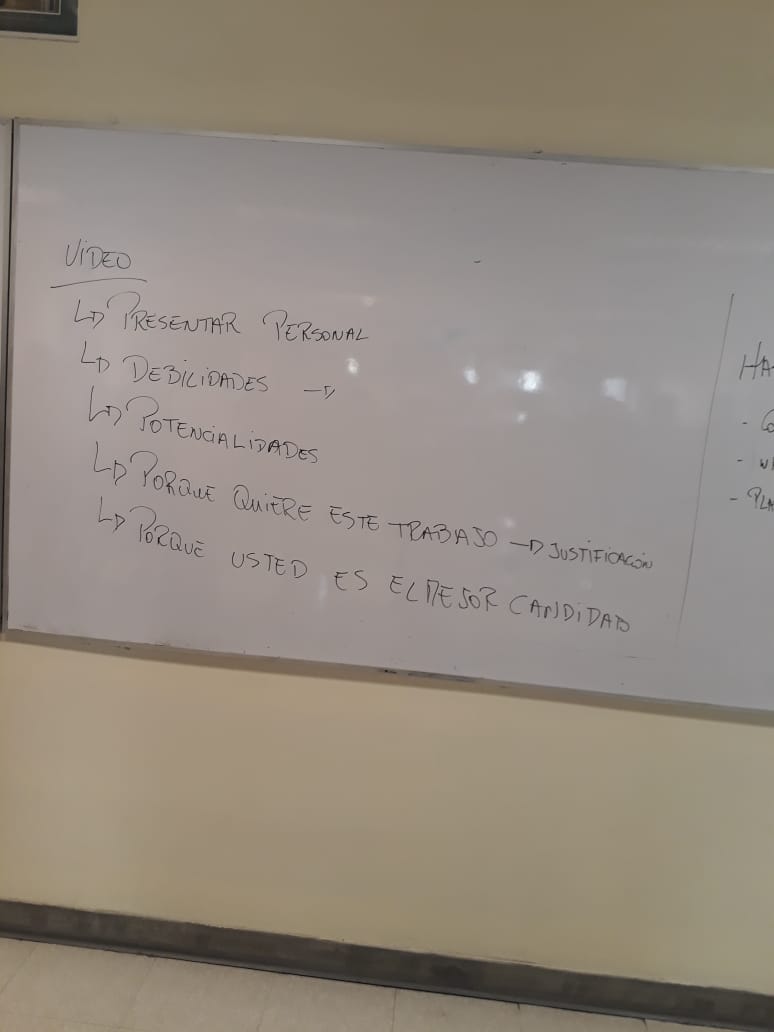 VIDEO
↳ PRESENTAR PERSONAL
↳ DEBILIDADES →
↳ POTENCIALIDADES
↳ PORQUE QUIERE ESTE TRABAJO → JUSTIFICACIÓN
↳ PORQUE USTED ES EL MEJOR CANDIDATO